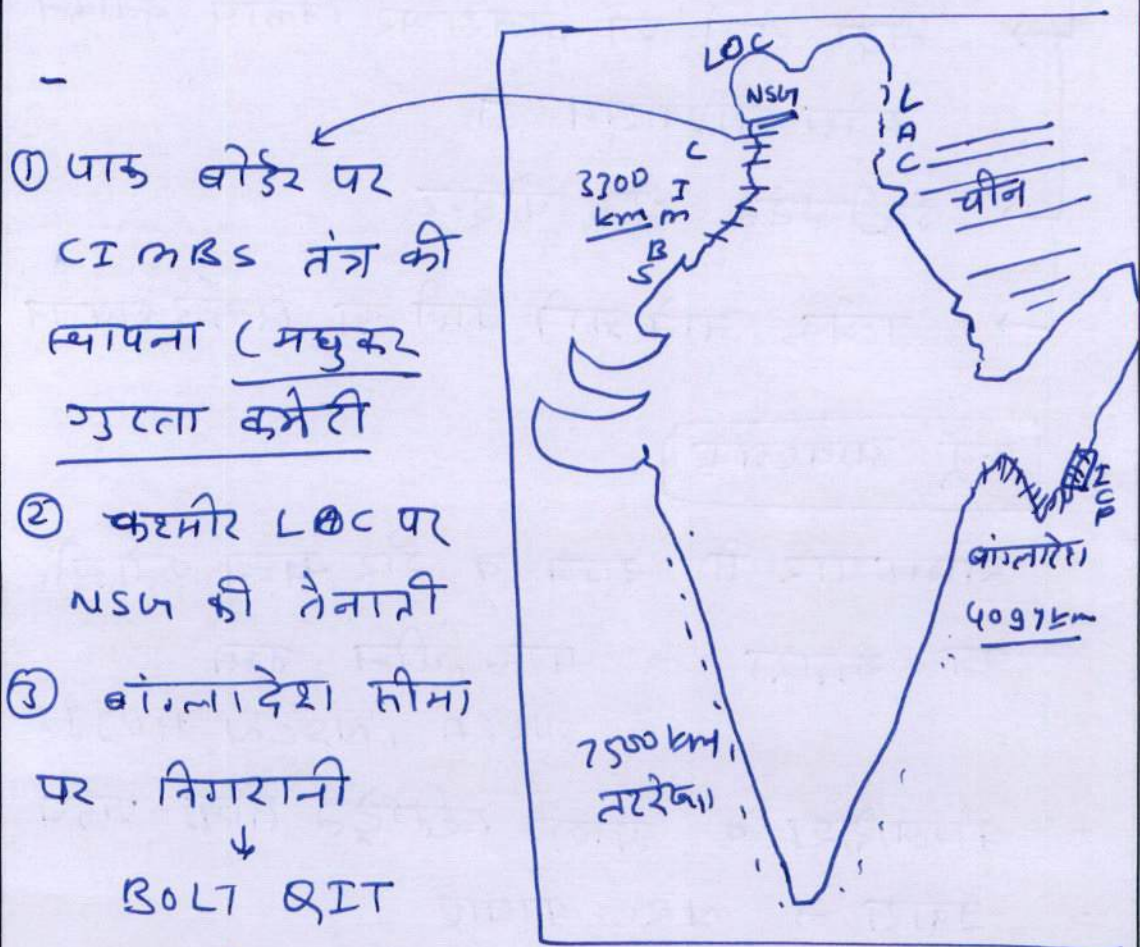 ① पाक बोर्डर पर
CIMBS तंत्र की
स्थापना (मधुकर
गुप्ता कमेटी
② कश्मीर LOC पर
NSG की तैनाती
③ बांग्लादेश सीमा
पर निगरानी
↓
BOLT QIT
LOC
NSG
LAC
चीन
3300
km
CIMBS
ICP
बांग्लादेश
4097 km
7500 km
तटरेखा